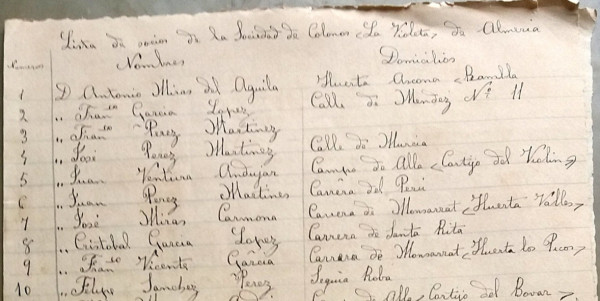 Lista de socios de la Sociedad de Colonos «La Violeta» de Almeria
Numeros Nombres Domicilios
1 D. Antonio Miras del Aguila Huerta Arcona Rambla
2 „ Fran.co Garcia Lopez Calle de Mendez Nº 11
3 „ Fran.co Perez Martinez
4 „ José Perez Martinez Calle de Murcia
5 „ Juan Ventura Andujar Campo de Alla «Cortijo del Violin»
6 „ Juan Perez Martines Carrera del Perú
7 „ José Miras Carmona Carrera de Monsarrat «Huerta Valles»
8 „ Cristobal Garcia Lopez Carrera de Santa Rita
9 „ Fran.co Vicente Garcia Carrera de Monsarrat «Huerta los Picos»
10 „ Felipe Sanchez Perez Sequia Roba
de Alla «Cortijo del Bovar»